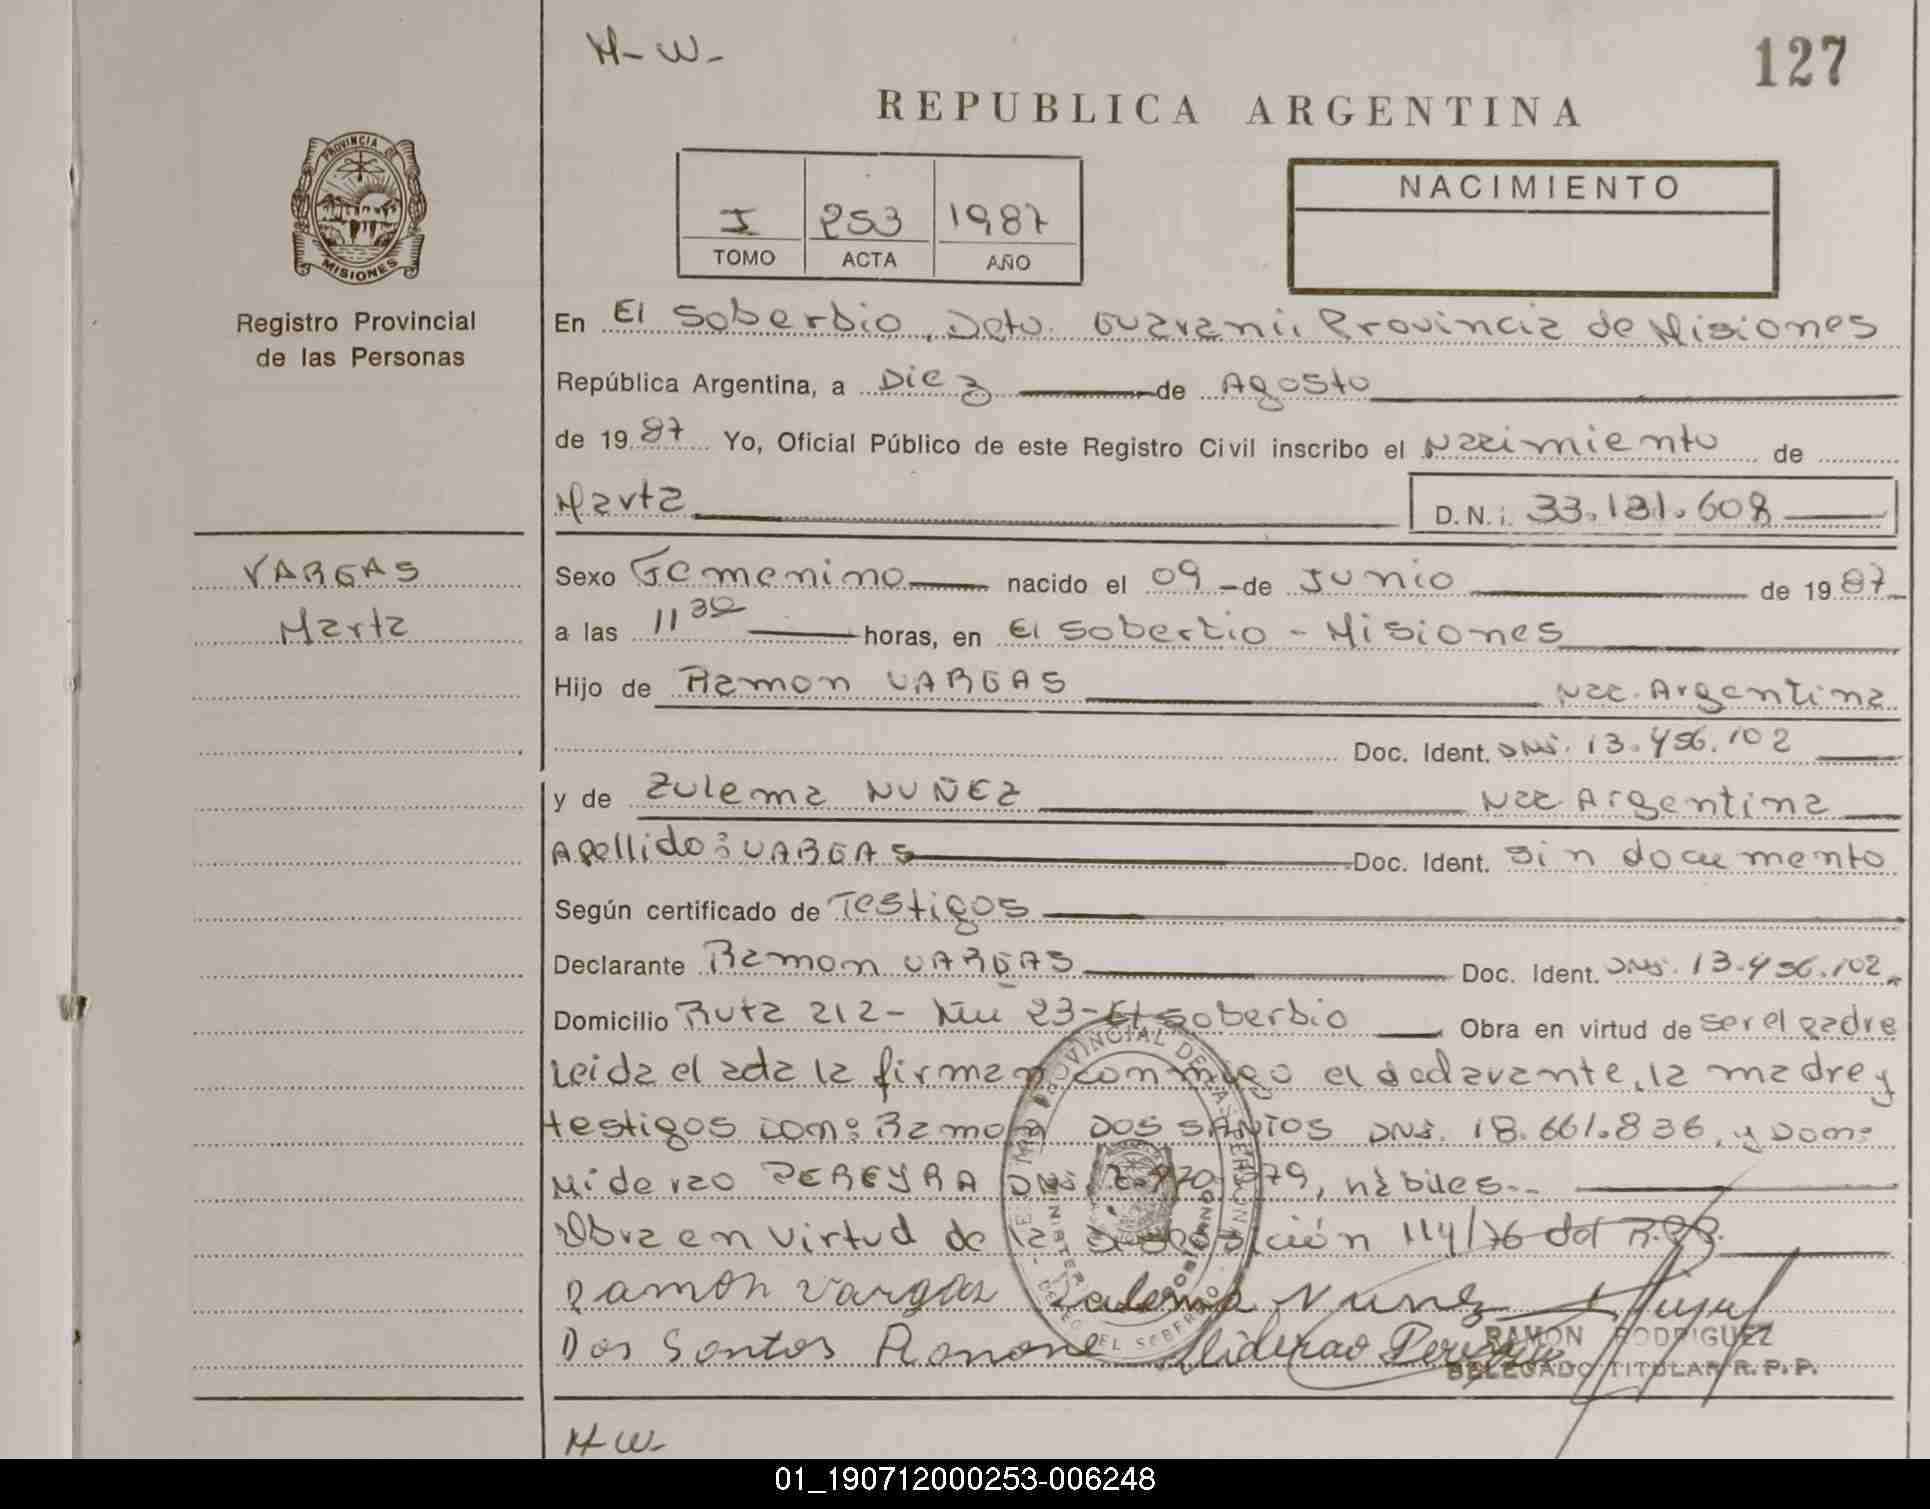 H-W-
127
REPUBLICA ARGENTINA
PROVINCIA DE
MISIONES
Registro Provincial
de las Personas
I 253 1987
TOMO ACTA AÑO
NACIMIENTO
En El Soberbio, Dcto. Guarani, Provincia de Misiones
República Argentina, a Diez de Agosto
de 1987 Yo, Oficial Público de este Registro Civil inscribo el Nacimiento de
Marta D.N.i. 33.131.608
VARGAS
Marta
Sexo Femenino nacido el 09 de Junio de 1987
a las 11 30 horas, en El Soberbio - Misiones
Hijo de Ramon VARGAS Nac. Argentina
Doc. Ident. DNI. 13.456.102
y de Zulema NUÑEZ Nac Argentina
Apellido: VARGAS Doc. Ident. Sin documento
Según certificado de Testigos
Declarante Ramon VARGAS Doc. Ident. DNI. 13.456.102
Domicilio Ruta 212 - Km 23 - El Soberbio Obra en virtud de ser el padre
Leida el acta la firman conmigo el declarante, la madre y
testigos Don: Ramon DOS SANTOS DNI. 18.661.836, y Don:
Miderao PEREYRA DNI. 079, hábiles.-
Obra en virtud de la disposición 114/76 del R.P.P.
Ramon Vargas Zulema Nuñez
Dos Santos Ramone Miderao Pereyra
RAMON RODRIGUEZ
DELEGADO TITULAR R. P. P.
H-W-
01_190712000253-006248